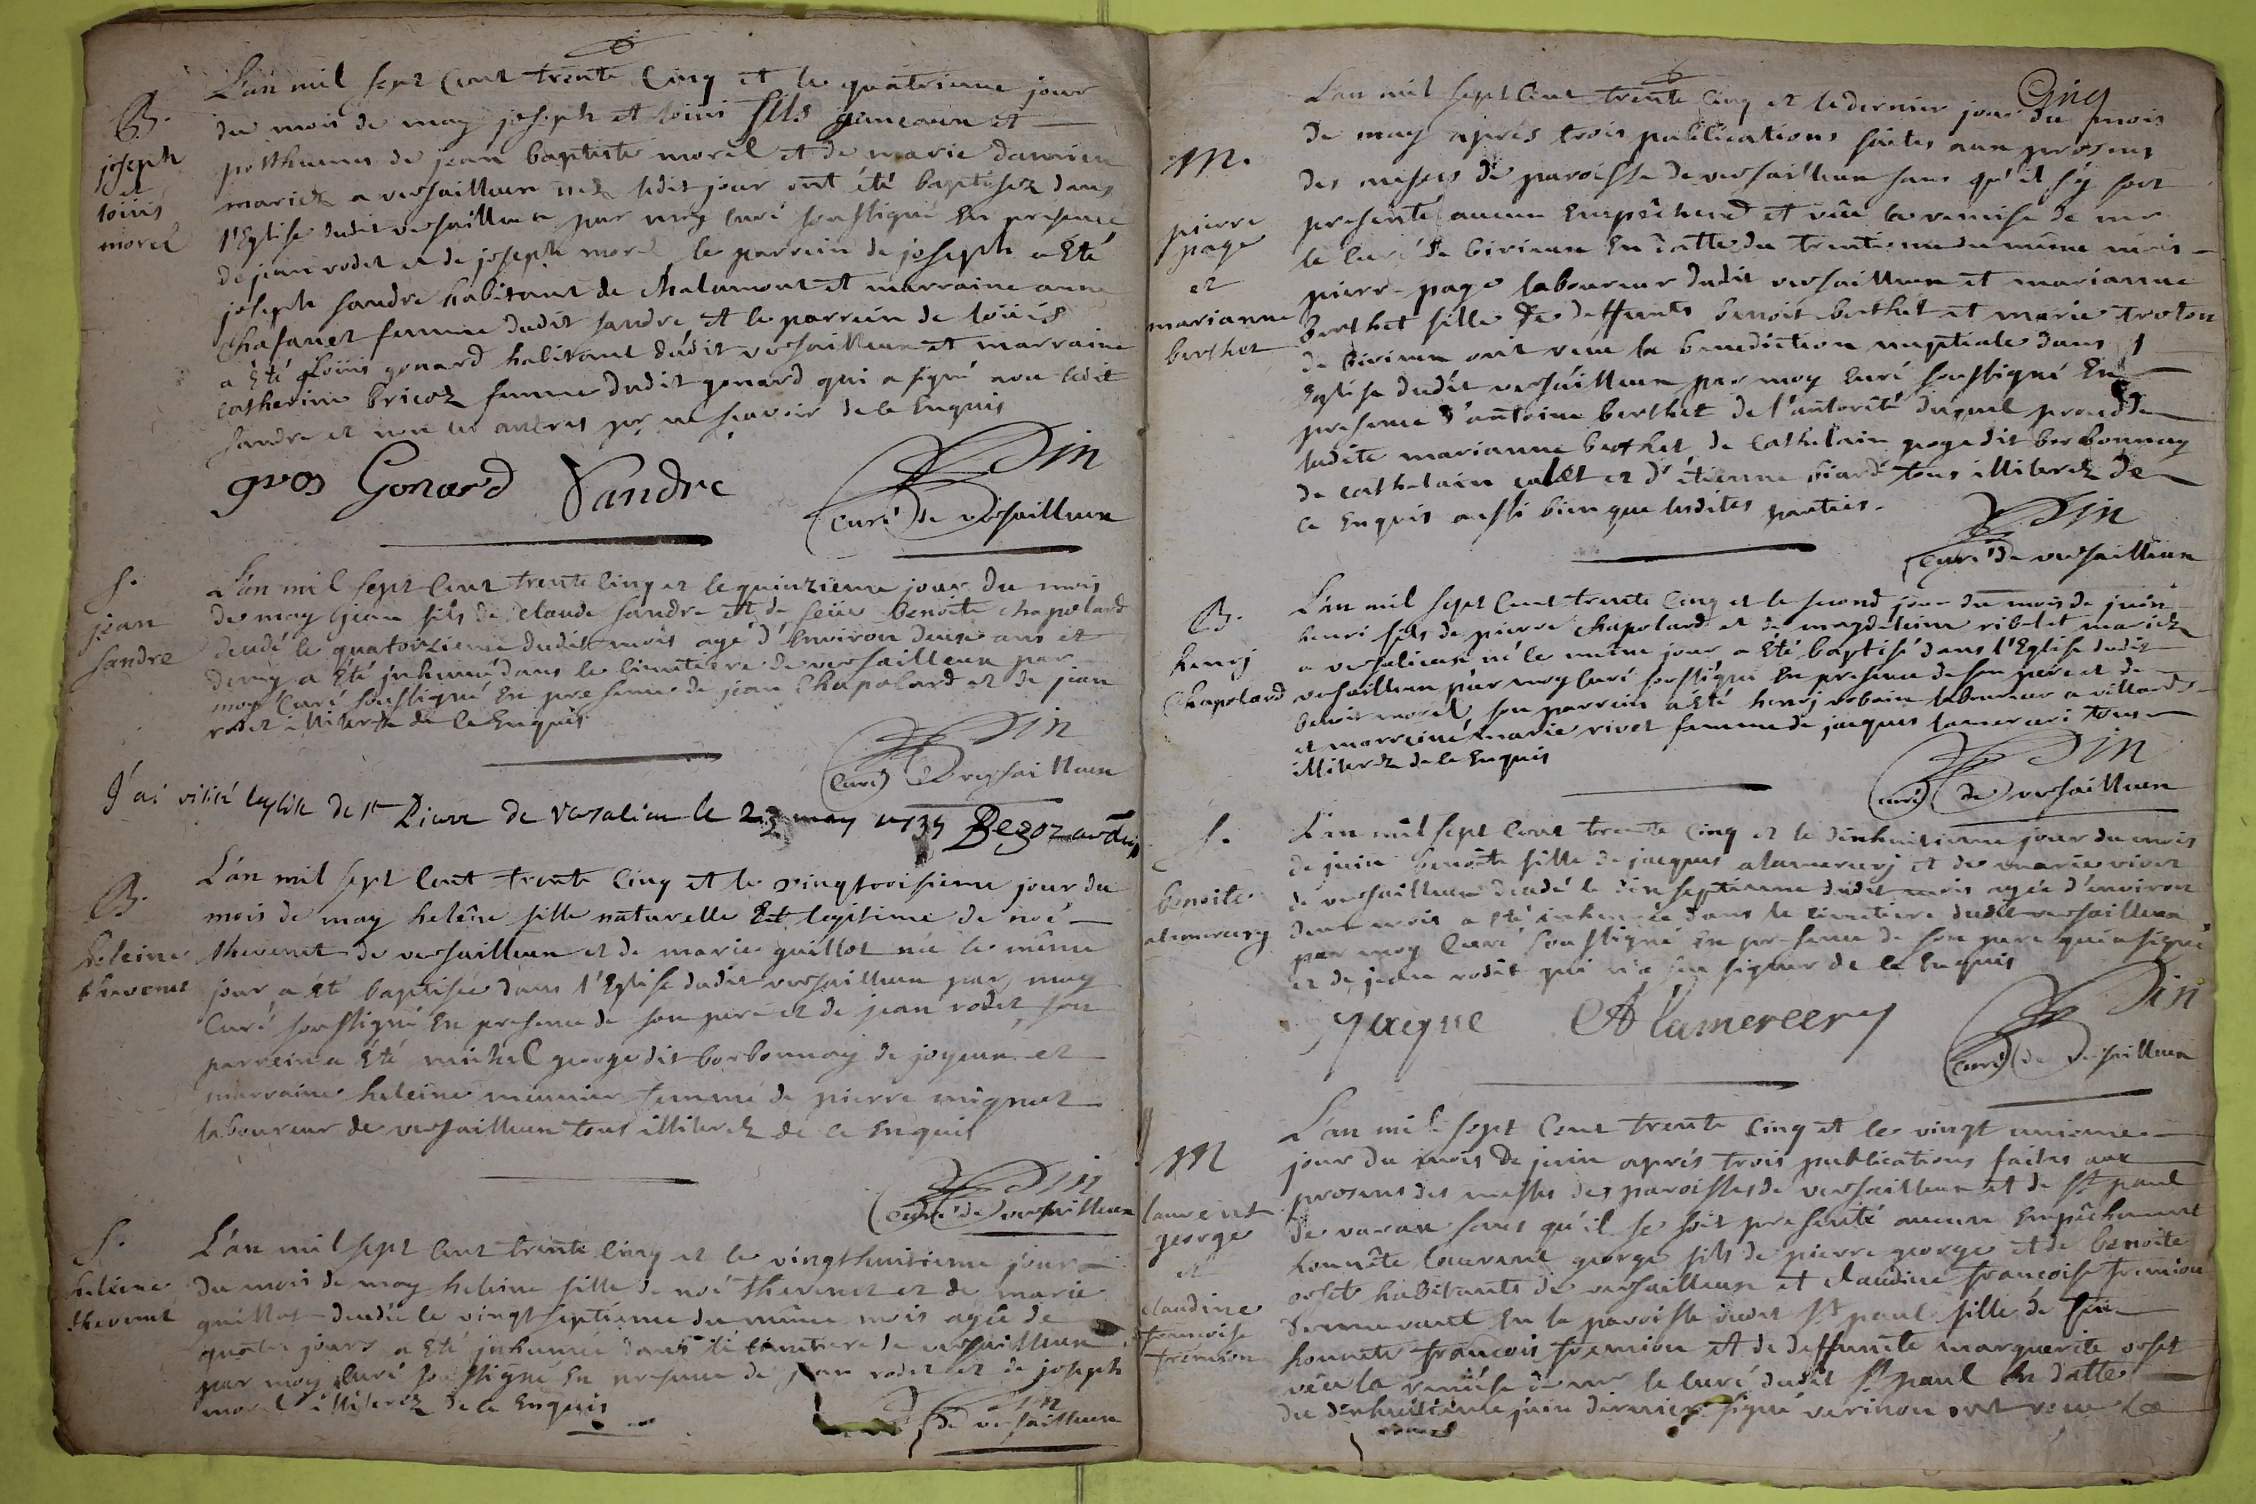 B.
joseph
et
loüis
morel
L'an mil sept cent trente cinq et le quatrieme jour
du mois de may joseph et loüis fils gemeaux et
posthumes de jean baptiste morel et de marie damien
mariez a versailleux nez ledit jour ont été baptisez dans
l'Eglise dudit versailleux par moy curé soussigné En presence
de jean rodet et de joseph morel le parrein de joseph a Eté
joseph sandre habitant de chalamont et marraine anne
Chasanet femme dudit sandre et le parrein de loüis
a Eté loüis gonard habitant dudit versailleux et marraine
catherine bricoz femme dudit gonard qui a signé avec ledit
sandre et non les autres pr ne scavoir de ce Enquis
gros Gonard Sandre
curé de versailleux
s.
jean
sandre
L'an mil sept cent trente cinq et le quinzieme jour du mois
de may jean fils de claude sandre et de feüe benoite chapolard
décédé le quatorzieme dudit mois agé d'Environ deux ans et
demy a Eté jnhumé dans le cimetiere de versailleux par
moy Curé soussigné En presence de jean Chapolard et de jean
rodet illiterez de ce Enquis
Curé de versailleux
J'ai visité leglise de st Pierre de Versalieu le 23 may 1735
B.
heleine
thevenet
L'an mil sept cent trente cinq et le vingt troisieme jour du
mois de may heleine fille naturelle Et legitime de noé
thevenet de versailleux et de marie guillot née le même
jour a été baptisée dans l'Eglise dudit versailleux par moy
Curé soussigné En presence de son pere et de jean rodet, son
parrein a Eté michel george dit borbonnay de joyeux et
marraine heleine meunier femme de pierre mignot
laboureur de versailleux tous illiterez de ce Enquis
curé de versailleux
s.
heleine
thevenet
L'an mil sept cent trente cinq et le vingt huitieme jour
du mois de may heleine fille de noé thevenet et de marie
guillot décédée le vingt septieme du même mois agée de
quatre jours a Eté jnhumée dans le cimetiere de versailleux
par moy curé soussigné En presence de jean rodet et de joseph
morel illiterez de ce Enquis
de versailleux
Cinq
M.
pierre
page
et
marianne
berthet
L'an mil sept cent trente cinq et le dernier jour du mois
de may apres trois publications faites aux prosnes
des messes de paroisse de versailleux sans qu'il s'y soit
presenté aucun Empêchement et vûe la remise de mr
le curé de birieux En datte du trentieme du même mois
pierre page laboureur dudit versailleux et marianne
berthet fille de deffunts benoit berthet et marie troton
de birieux ont reçu la benediction nuptiale dans l'
Eglise dudit versailleux par moy curé soussigné En
presence d'antoine berthet de l'autorité duquel procede
ladite marianne berthet, de cathelain page dit borbonnay
de cathelain et d'étienne biard tous illiterez de
ce Enquis aussi bien que lesdites parties.
Curé de versailleux
B.
henrj
Chapolard
L'an mil sept cent trente cinq et le second jour du mois de juin
henri fils de pierre chapolard et de magdeleine ribolet mariez
a versalieux né le meme jour a Eté baptisé dans l'Eglise dudit
versailleux par moy curé soussigné En presence de son pere et de
benoit morel, son parrein a Eté henrj robain laboureur a villard
et marreine marie rivet femme de jacques lamercuri tous
illiterez de ce Enquis
curé de versailleux
s.
benoite
alamercury
L'an mil sept cent trente cinq et le dixhuitieme jour du mois
de juin benoite fille de jacques alamercurj et de marie rivet
de versailleux décédé le dix septieme dudit mois agée d'environ
deux mois a Eté inhumée dans le cimetiere dudit versailleux
par moy Curé soussigné En presence de son pere qui a signé
et de jean rodet qui n'a sçu signer de ce Enquis
Jacque Alamercery
curé de versailleux
M
laurent
george
et
claudine
francoise
fremion
L'an mil sept cent trente cinq et le vingt unieme
jour du mois de juin aprés trois publications faites aux
prosnes des messes des paroisses de versailleux et de st paul
de varax sans qu'il se soit presenté aucun Empêchement
honnête laurent george fils de pierre george et de benoite
orset habitants de versailleux et claudine françoise fremion
demeurant En la paroisse dudit st paul fille de feu
honnete françois fremion et de deffunte marguerite orset
vûe la remise de mr le curé dudit st paul En datte
du dixhuitieme juin dernier signé verinon ont reçu la